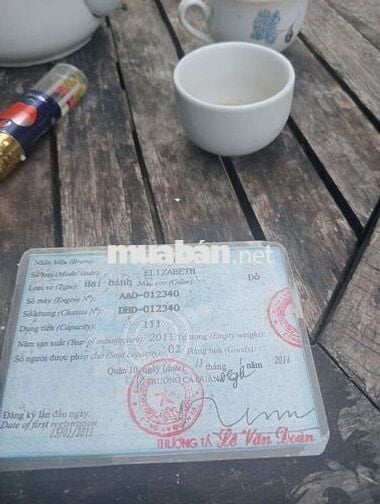 Nhãn hiệu (Brand):
Số loại (Model code): ELIZABETH
Loại xe (Type): Hai bánh Màu sơn (Color): Đỏ
Số máy (Engine N°): AAD-012340
Số khung (Chassis N°): DBD-012340
Dung tích (Capacity): 111
Năm sản xuất (Year of manufacture): 2011 Tự trọng (Empty weight):
Số người được phép chở (Seat capacity): 02 Hàng hoá (Goods):
Quận 10, ngày (date) 13 tháng 1 năm 2011
TRƯỞNG CA QUẬN
Đăng ký lần đầu ngày:
Date of first registration
13/01/2011
THƯỢNG TÁ Lê Văn Đoàn
muaban.net